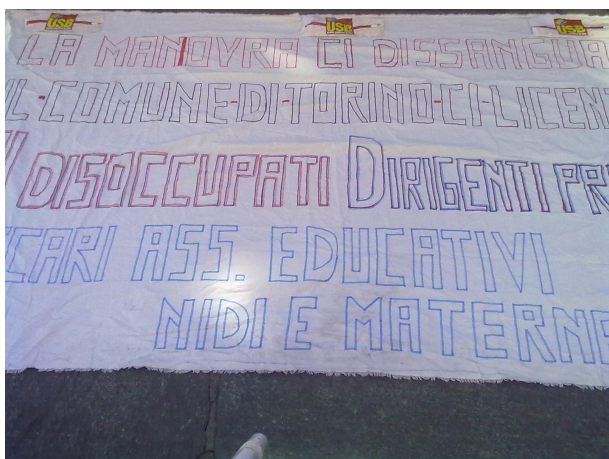 USB USB USB
LA MANOVRA CI DISSANGUA
IL-COMUNE-DI-TORINO-CI-LICEN
I DISOCCUPATI DIRIGENTI PR
CARI ASS. EDUCATIVI
NIDI E MATERNE